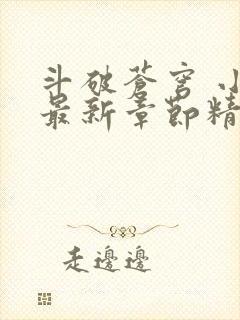 斗破苍穹 小
最新章节精
走邊邊